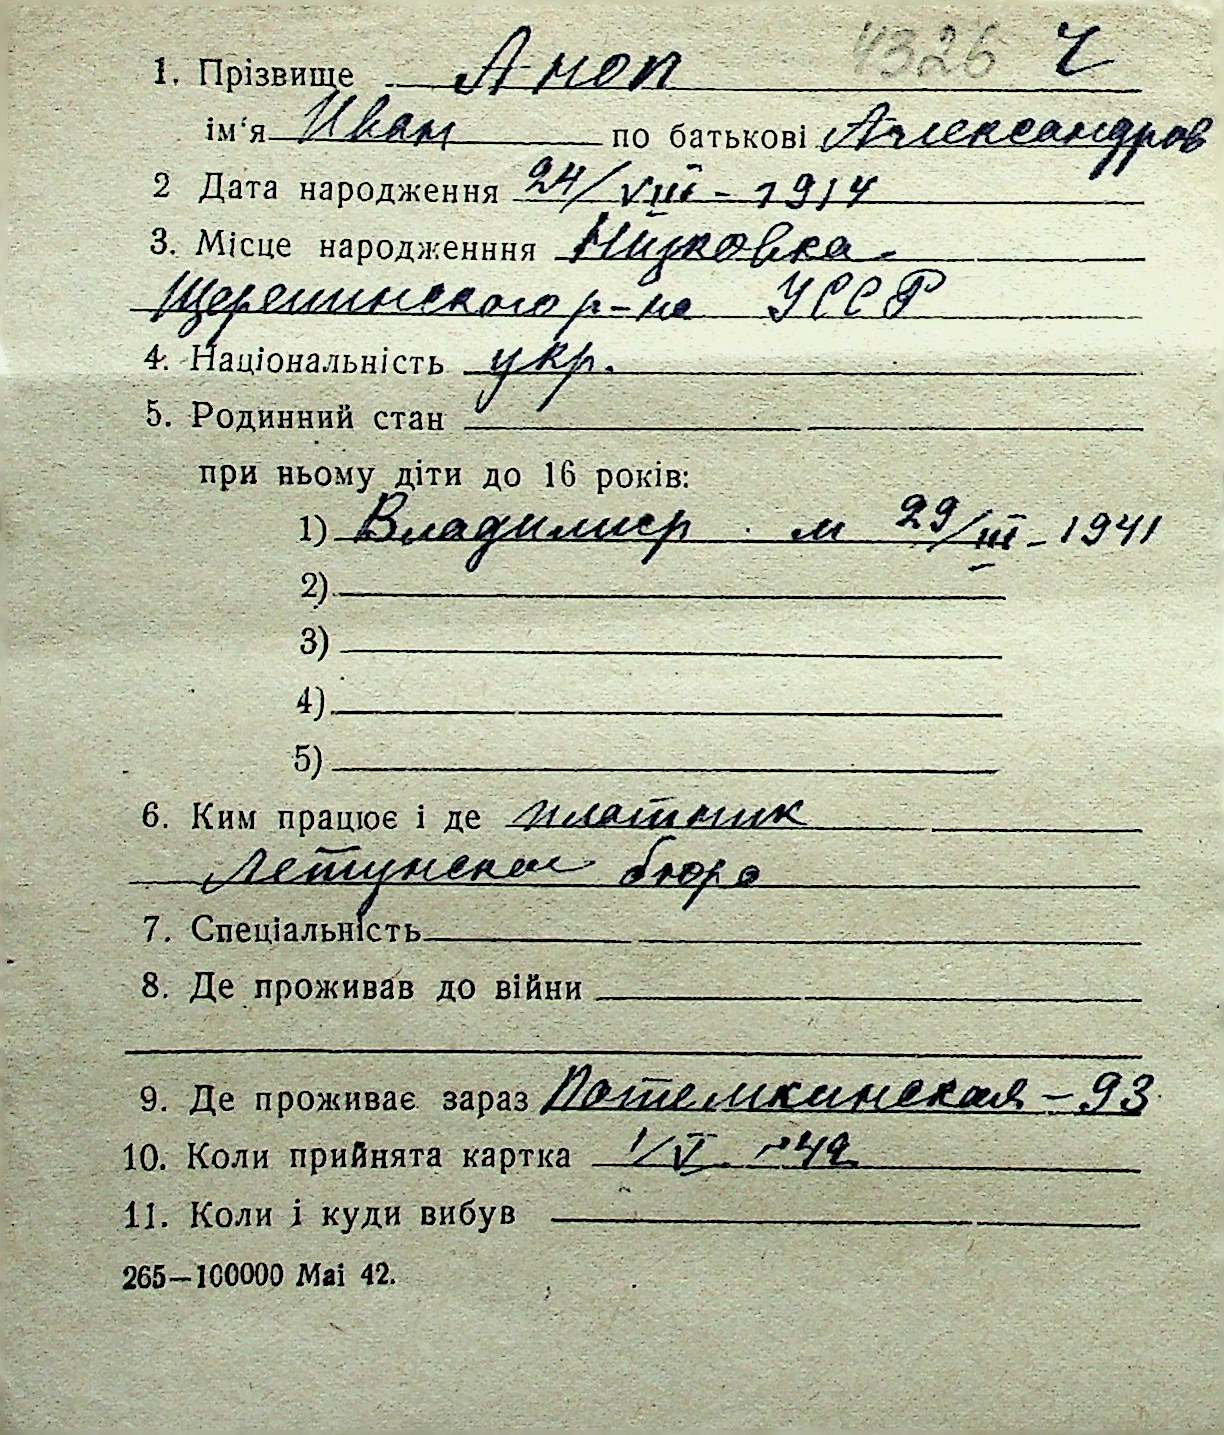 4326 Ч
1. Прізвище Аноп
ім'я Иван по батькові Александров
2 Дата народження 24/VIII - 1914
3. Місце народженння Низковка
р-на УССР
4. Національність укр.
5. Родинний стан
при ньому діти до 16 років:
1) Владимир м 29/III - 1941
2)
3)
4)
5)
6. Ким працює і де плотник
бюро
7. Спеціальність
8. Де проживав до війни
9. Де проживає зараз Потемкинская - 93
10. Коли прийнята картка 1/V
11. Коли і куди вибув
265—100000 Mai 42.